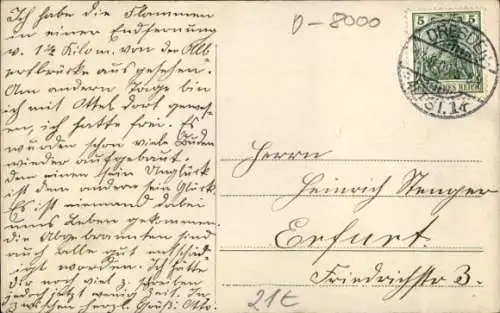 Ich habe die Flammen
in einer Endhernung
v. 1½ Kilom. von der Alb
ertbrücke aus gesehen.
Am andern Tage bin
ich mit Ottel dort gewes-
en, ich hatte frei. Es
wurden schon viele Buden
wieder aufgebaut.
dem einen sein Unglück
ist dem andern sein Glück
Es ist niemand dabei
ums Leben gekommen.
die Abgebrannten sind
auch alle gut entschäd-
igt worden. Ich hätte
dir noch viel z. schreiben
jedoch jetzt wenig Zeit. In-
zwischen herzl. Gruß: Otto.
D-8000
5 5
DRESDEN
DEUTSCHES REICH
Herrn
Heinrich Stenger
Erfurt.
Friedrichstr 3.
21t